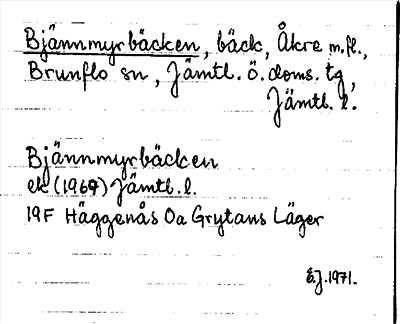 Bjännmyrbäcken, bäck, Åkre m.fl.,
Brunflo sn, Jämtl. ö. doms. tg,
Jämtl. l.
Bjännmyrbäcken
ek (1969) Jämtl. l.
19F Häggenås Oa Grytans Läger
E.J. 1971.